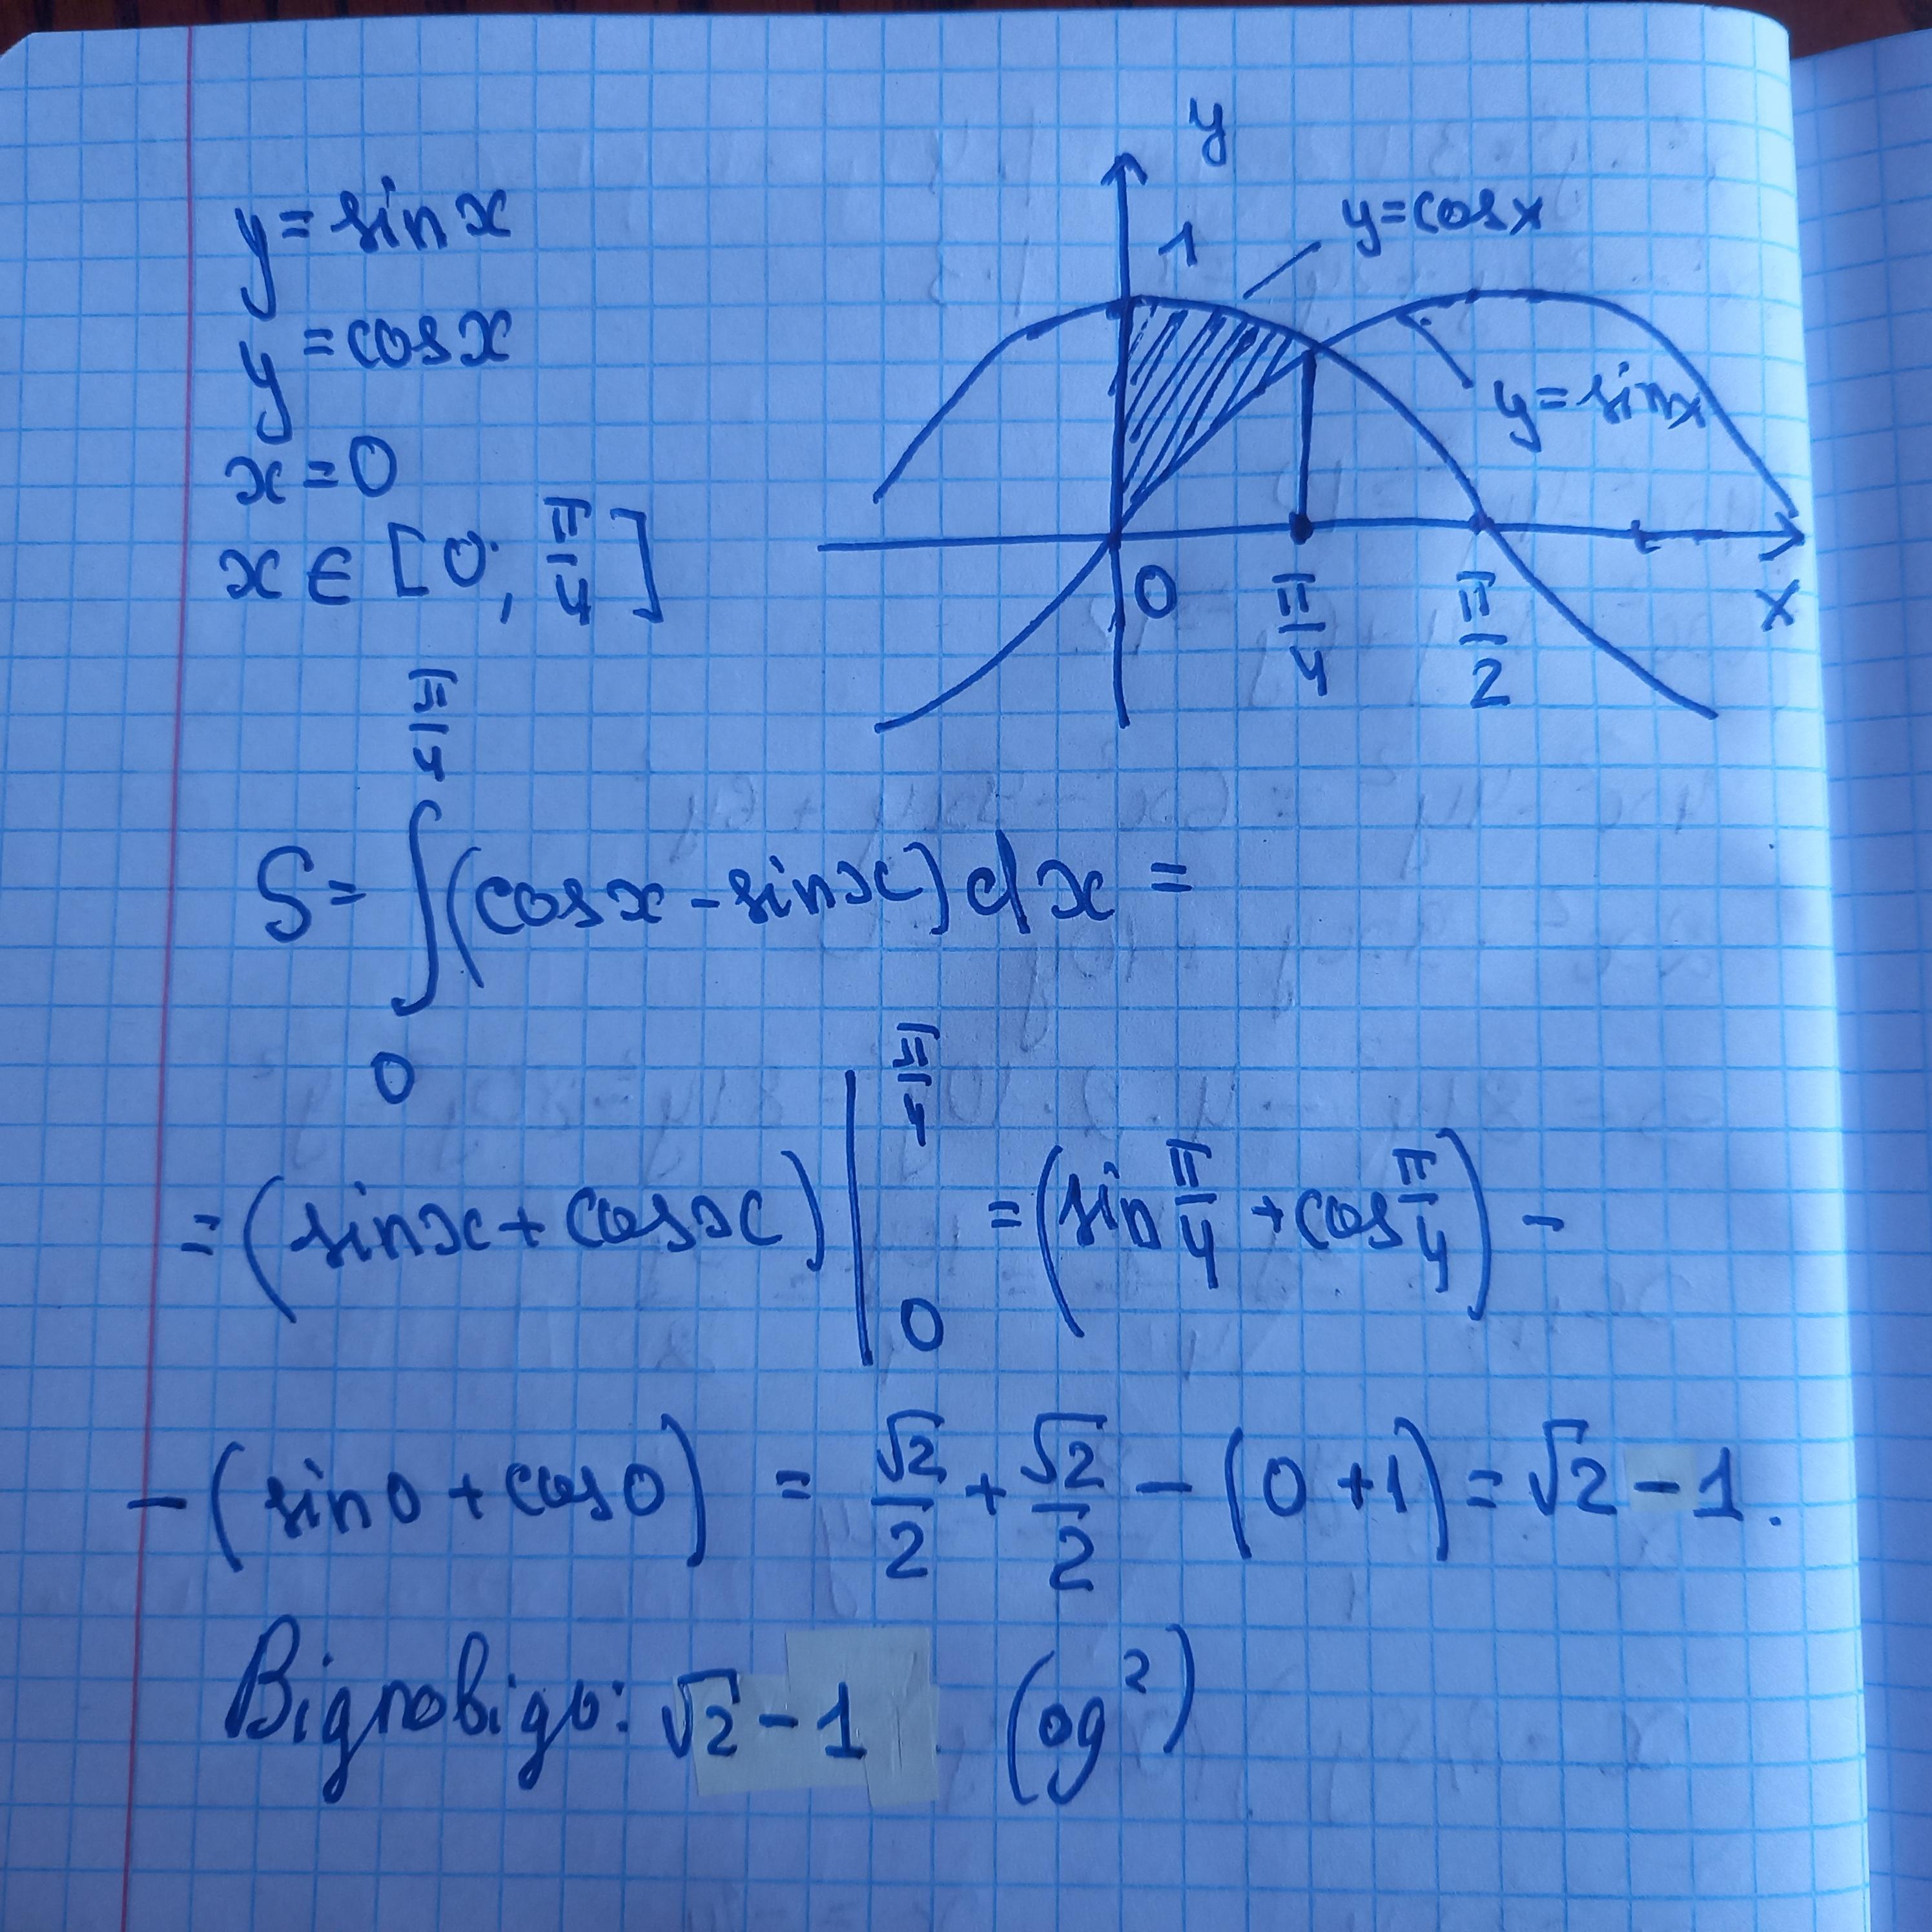 y = sin x
y = cos x
x = 0
x ∈ [0; π/4]
y
1
y = cos x
y = sin x
0
π/4
π/2
x
S = ∫₀^(π/4) (cos x - sin x) dx =
= (sin x + cos x) |₀^(π/4) = (sin π/4 + cos π/4) -
- (sin 0 + cos 0) = √2/2 + √2/2 - (0 + 1) = √2 - 1.
Відповідь: √2 - 1. (од²)